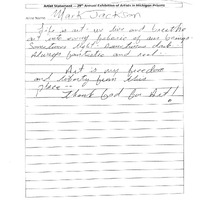 Artist Statement - 20th Annual Exhibition of Art by Michigan Prisoners
Mark Jackson
Life is art: we live and breathe
art into every
of our beings.
Sometimes light. Sometimes dark.
Always fantastic and real.
Art is my freedom
and liberty from this
place --
Thank God for Art!